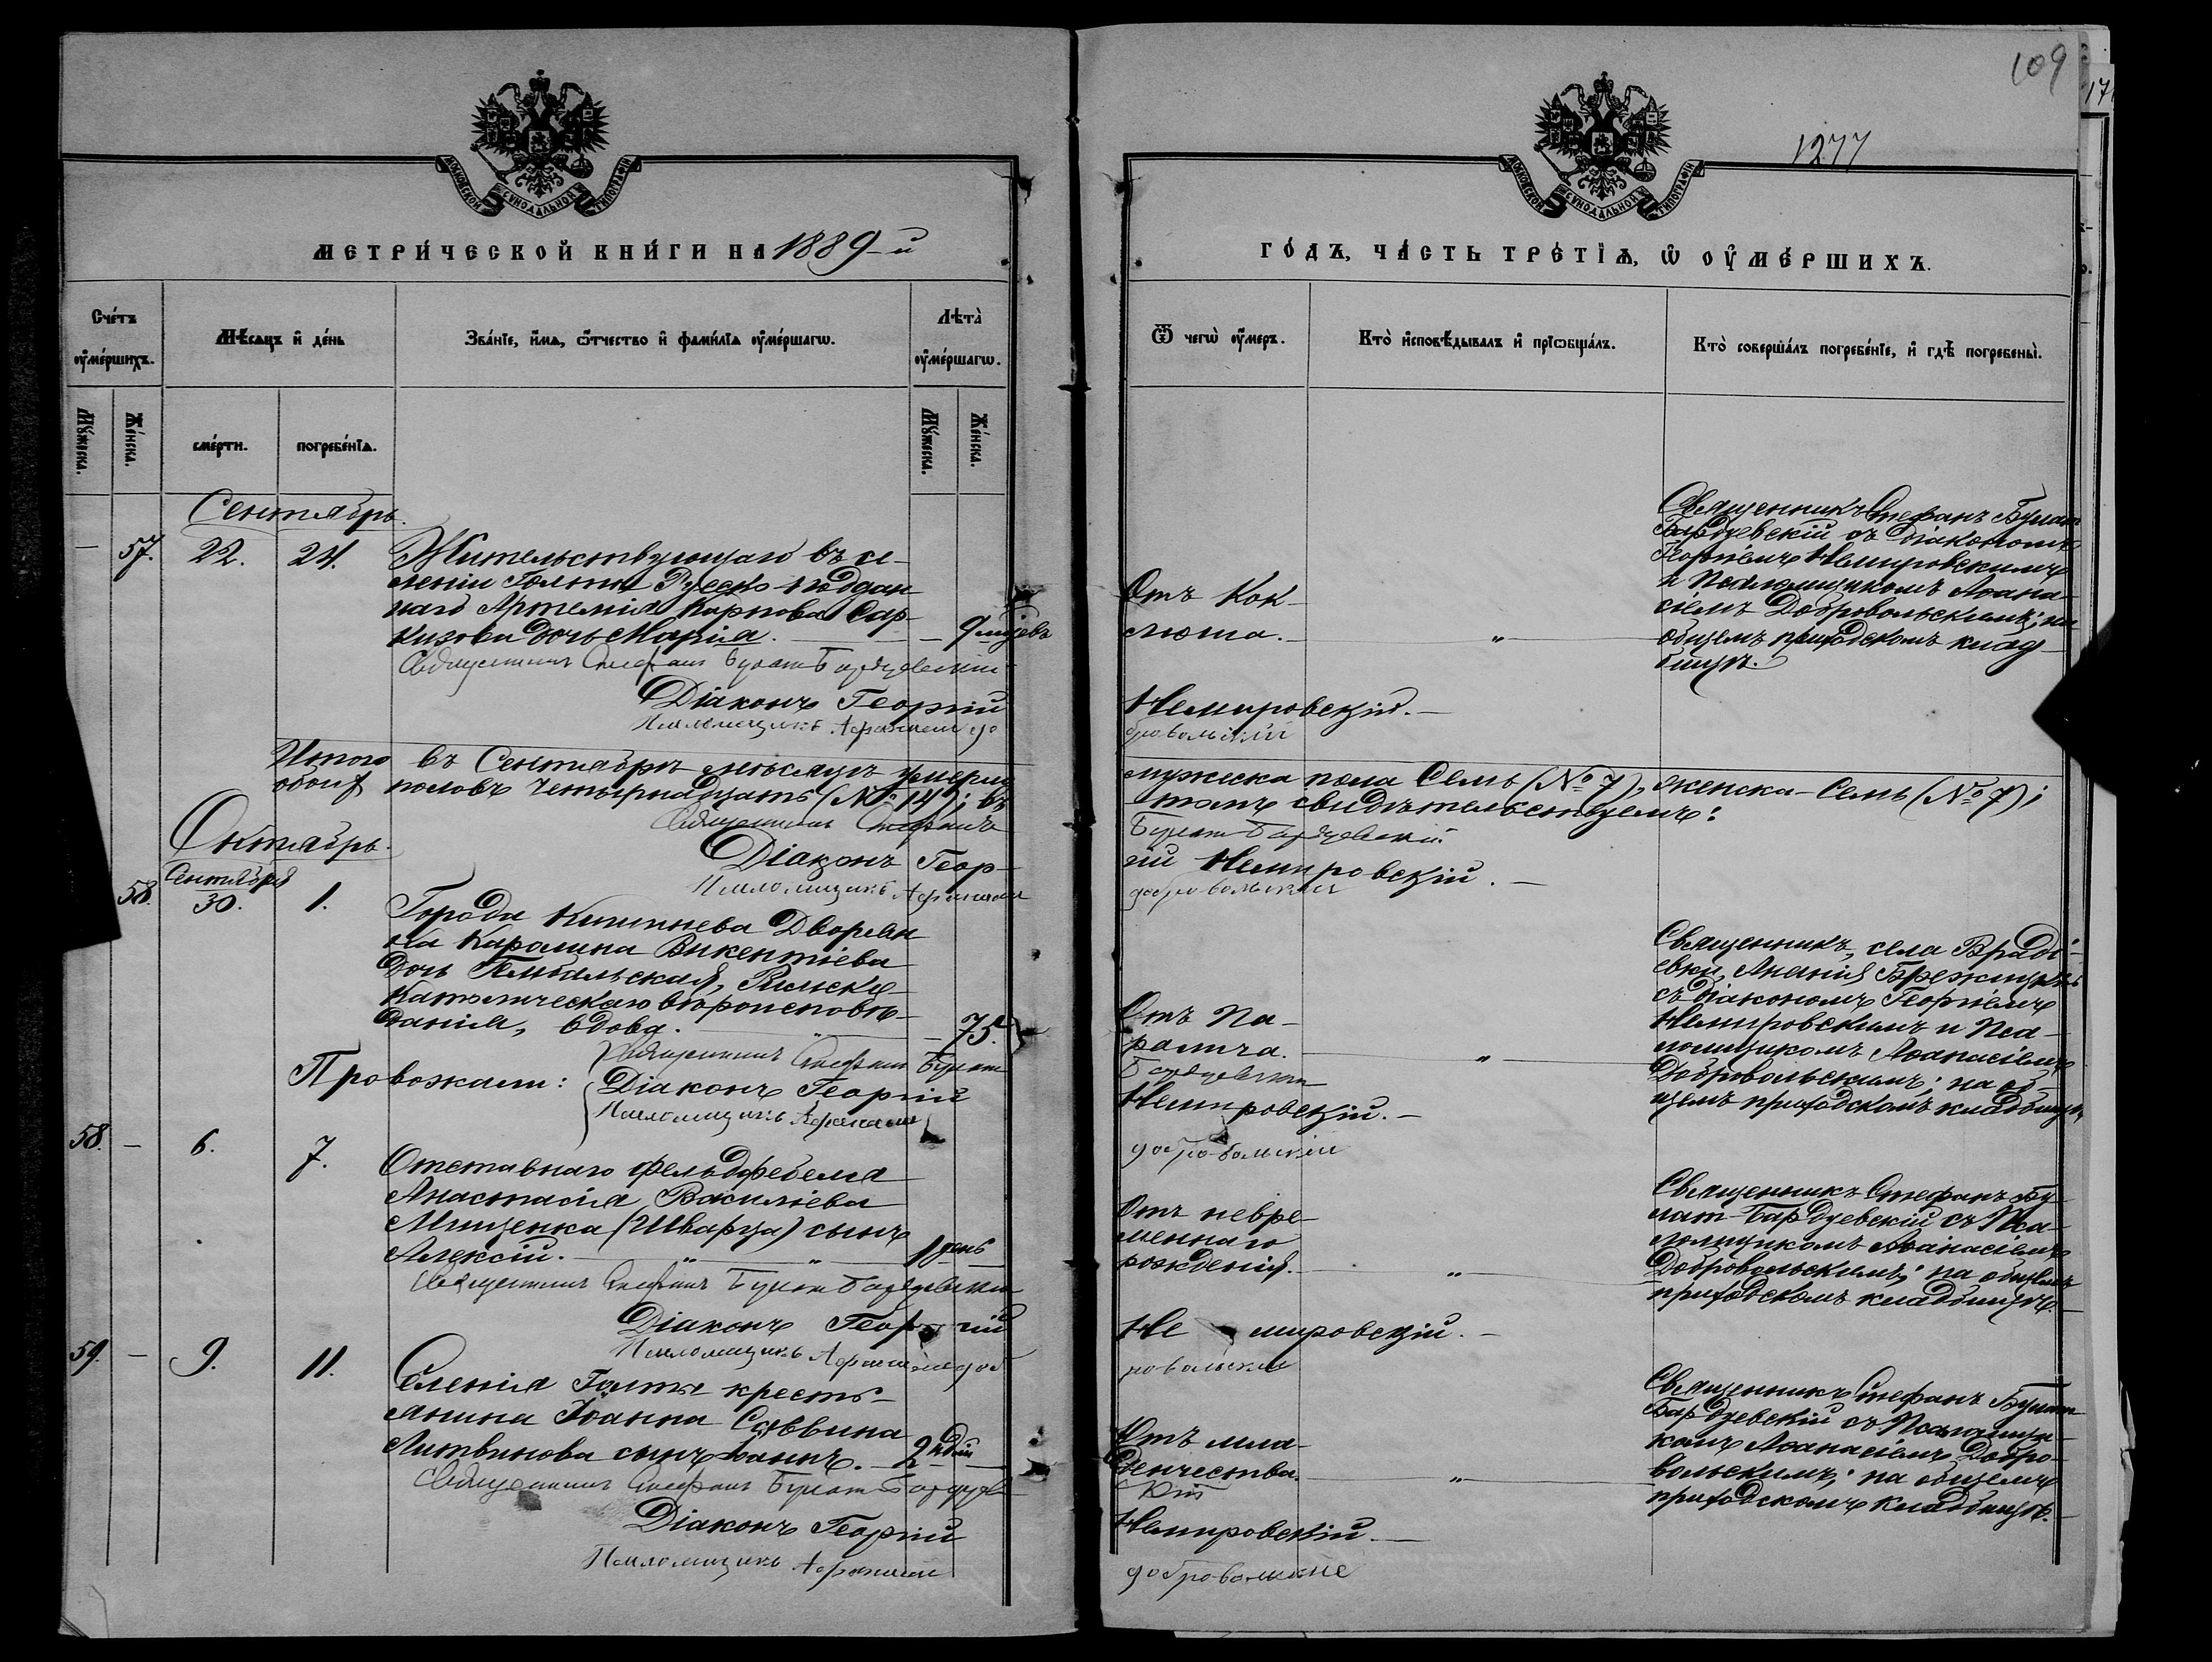 109
17
1277
МОСКОВСКОЙ СѴНОДАЛЬНОЙ ТИПОГРАФІИ
МОСКОВСКОЙ СѴНОДАЛЬНОЙ ТИПОГРАФІИ
МЕТРИ́ЧЕСКОЙ КНИ́ГИ НА 1889-й
ГО́ДЪ, ЧА́СТЬ ТРЕ́ТІѦ, Ѡ҆ ОУ҆МЕ́РШИХЪ.
Сче́тъ оу҆ме́ршихъ.
Мѣ́сѧцъ и҆ де́нь
Зва́нїе, и҆́мѧ, ѻ҆́тчество и҆ фами́лїѧ оу҆ме́ршагѡ.
Лѣта̀ оу҆ме́ршагѡ.
Ѿ чегѡ̀ оу҆́меръ.
Кто̀ и҆сповѣ́дывалъ и҆ прїѡбща́лъ.
Кто̀ соверша́лъ погребе́нїе, и҆ гдѣ̀ погребены̀.
Мꙋ́жеска.
Же́нска.
сме́рти.
погребе́нїѧ.
Мꙋ́жеска.
Же́нска.
Сентябрь.
— 57. 22. 24.
Жительствующаго въ се-
леніи Голтѣ Русско-поддан
наго Артемія Карпова Сар-
кизова дочь Марія. — 9 мѣсяцевъ
Отъ Кок-
люша. — „ —
Священникъ Стефанъ Булат
Бардзевскій съ діакономъ
Георгіемъ Немировскимъ
и Псаломщикомъ Аѳана-
сіемъ Добровольскимъ; на
общемъ приходскомъ клад-
бищѣ.
Священникъ Стефанъ Булат Бардзевскій
Діаконъ Георгій Немировскій. —
Псаломщикъ Афанасій Добровольскій
Итого въ Сентябрѣ мѣсяцѣ умерло мужеска пола Семь (№ 7), женска – Семь (№ 7);
обоихъ половъ четырнадцать (№ 14); въ томъ свидѣтельствуемъ:
Священникъ Стефанъ Булат Бардзевскій
Діаконъ Георгій Немировскій. —
Псаломщикъ Афанасій Добровольскій
Октябрь.
58. Сентября 30. 1.
Города Кишинева Дворян
ка Каролина Викентіева
дочь Рильско
Католическаго вѣроисповѣ-
данія, вдова. — „ — 75.
Отъ Па-
ралича. — „ —
Священникъ, села Враді-
евки, Ананія
съ діакономъ Георгіемъ
Немировскимъ и Пса-
ломщикомъ Аѳанасіемъ
Добровольскимъ; на об-
щемъ приходскомъ кладбищѣ.
Провожали:
Священникъ Стефанъ Булат Бардзевскій
Діаконъ Георгій Немировскій. —
Псаломщикъ Афанасій Добровольскій
58. — 6. 7.
Отставнаго фельдфебеля
Анастасія Василіева
Мищенка (Шварца) сынъ
Алексій. — „ — „ — 1 день
Отъ невре-
меннаго
рожденія. — „ —
Священникъ Стефанъ Бу-
лат-Бардзевскій съ Пса-
ломщикомъ Аѳанасіемъ
Добровольскимъ; на общемъ
приходскомъ кладбищѣ
Священникъ Стефанъ Булат Бардзевскій
Діаконъ Георгій Немировскій. —
Псаломщикъ Афанасій Добровольскій
59. — 9. 11.
Селенія Голты кресть-
янина Іоанна Саввина
Литвинова сынъ Іоаннъ. — 2 дни
Отъ мла-
денчества. — „ —
Священникъ Стефанъ Булат
Бардзевскій съ Псаломщи-
комъ Аѳанасіемъ Добро-
вольскимъ; на общемъ
приходскомъ кладбищѣ. —
Священникъ Стефанъ Булат Бардзевскій
Діаконъ Георгій Немировскій. —
Псаломщикъ Афанасій Добровольскій